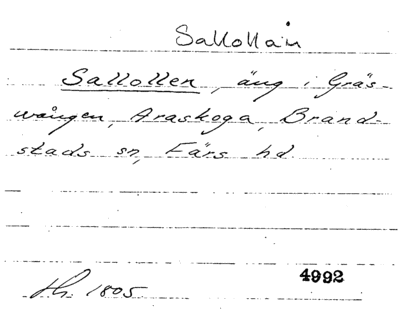 Sallollan
Sallollen, äng i Gräs-
vången, Araskoga, Brand-
stads sn, Färs hd
Hr. 1805
4992